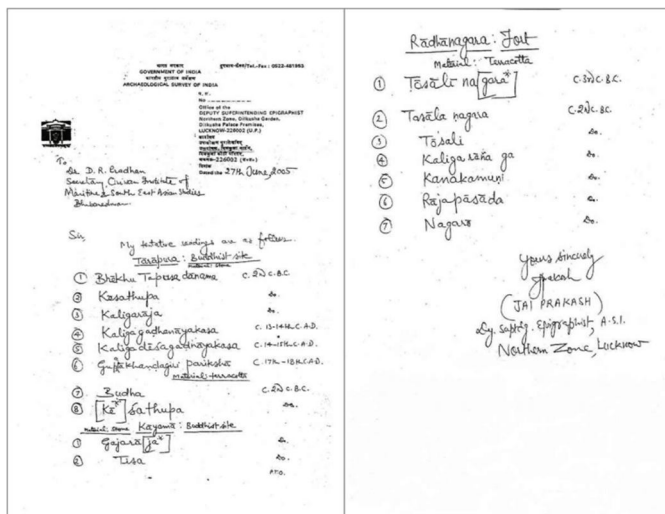 भारत सरकार
GOVERNMENT OF INDIA
भारतीय पुरातत्व सर्वेक्षण
ARCHAEOLOGICAL SURVEY OF INDIA
No.
Office of the
DEPUTY SUPERINTENDING EPIGRAPHIST
Northern Zone, Dilkusha Garden,
Dilkusha Palace Premises,
LUCKNOW-226002 (U.P.)
Dated the 27th June, 2005
To
Dr. D. R. Pradhan
Secretary, Institute of
Maritime & South East Asian Studies
Bhubaneswar
Sir,
My tentative readings are as follows.
Tarapura : Buddhist site
Material: Stone
① Bhikhu Tapusa dānama C. 2nd C. B.C.
② Kesathupa Do.
③ Kaligarāja Do.
④ Kaligagadhanāyakasa C. 13-14th C. A.D.
⑤ Kaligadēsagadhnāyakasa C. 14-15th C. A.D.
⑥ Guptakhandagiri parikshā C. 17th-18th C. A.D.
Material: terracotta
⑦ Budha C. 2nd C. B.C.
⑧ [Kē*] Sathupa Do.
Material: Stone Kayamā : Buddhist site
① Gajarā [ja*] Do.
② Tisa Do.
P.T.O.
Rādhanagara : Fort
Material : Terracotta
① Tōsali na[gara*] C. 3rd C. B.C.
② Tasāla nagara C. 2nd C. BC.
③ Tōsali Do.
④ Kaliga raña ga Do.
⑤ Kanakamuni Do.
⑥ Rājapāsāda Do.
⑦ Nagara Do.
Yours Sincerely
(JAI PRAKASH)
Dy. Suptdg. Epigraphist, A.S.I.
Northern Zone, Lucknow